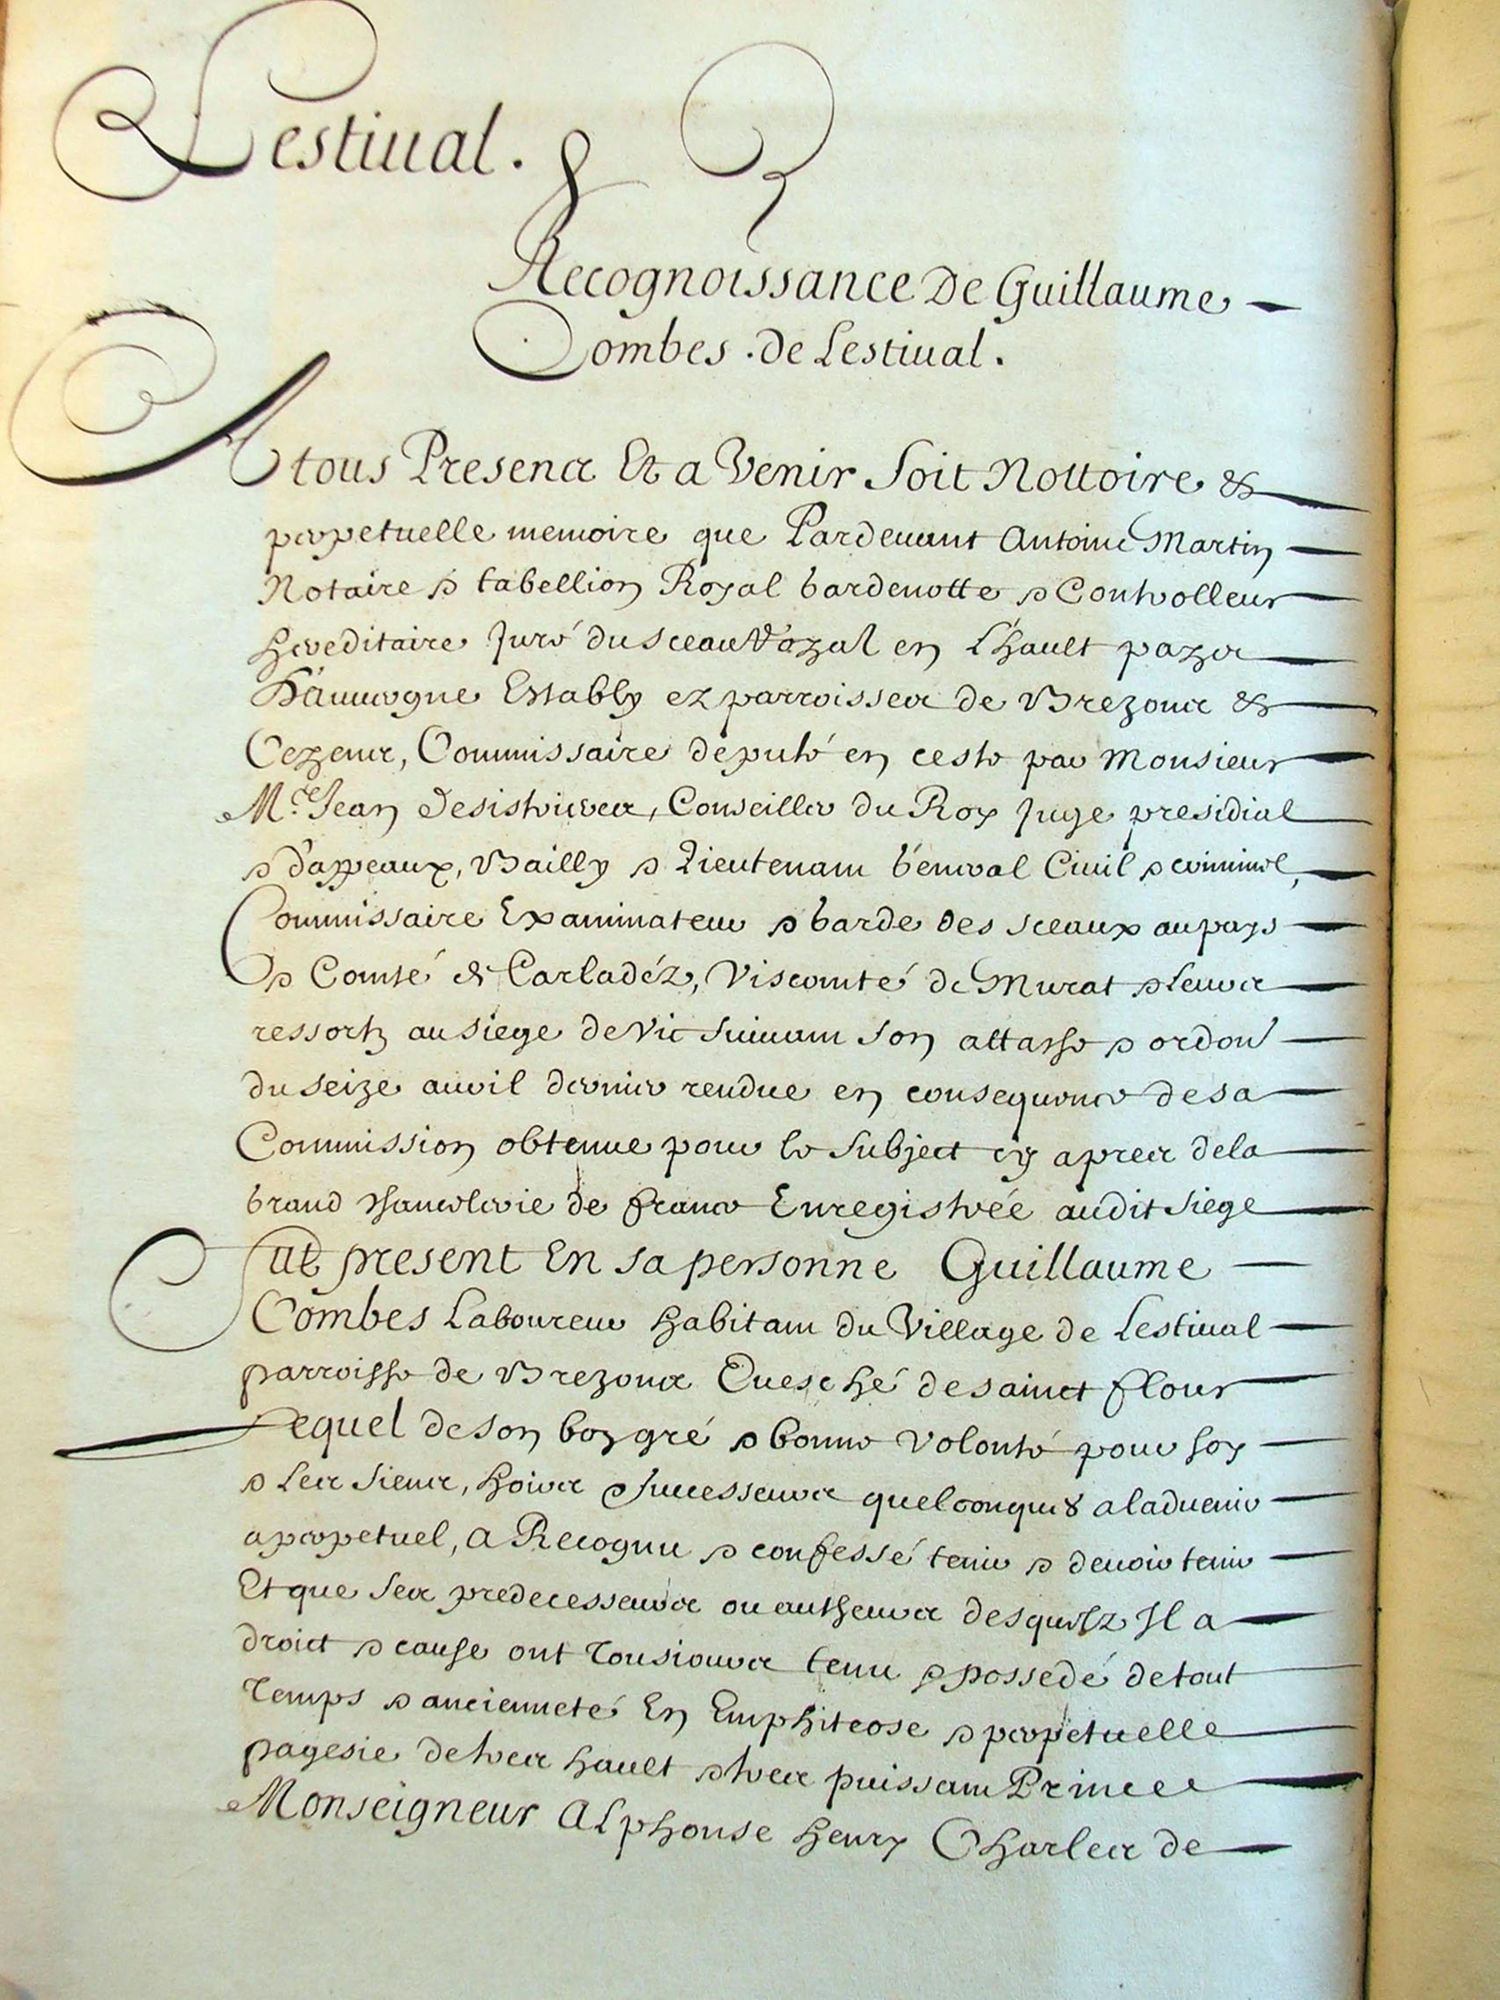 Lestiual.
Recognoissance De Guillaume
Combes . de Lestiual.
A tous Presens Et a Venir Soit Nottoire &
perpetuelle memoire que Pardeuant Antoine Martin
Notaire & tabellion Royal Gardenotte & Controlleur
hereditaire Juré du sceau Royal en L'hault pays
D'auuergne Estably ez parroisses de Brezons &
Cezens, Commissaire deputé en ceste par Monsieur
Me. Jean Desistrieres, Conseiller du Roy Juge presidial
& d'appeaux, Bailly & Lieutenant General Ciuil & criminel,
Commissaire Examinateur & Garde des sceaux au pays
& Comté de Carladéz, Viscomté de Murat & leurs
ressortz au siege de Vic suiuant son attache & ordon
du seize auril dernier rendue en consequence de sa
Commission obtenue pour le subject cy apres de la
Grand Chancelerie de france Enregistrée audit siege
fut present En sa personne Guillaume
Combes Laboureur habitant du Village de Lestiual
parroisse de Brezons Euesché de sainct flour
Lequel de son bon gré & bonne Volonté pour soy
& Les siens, hoirs & successeurs quelconques a laduenir
a perpetuel, a Recognu & confessé tenir & deuoir tenir
Et que ses predecesseurs ou autheurs desquelz Il a
droict & cause ont tousiours tenu & possedé de tout
temps & ancienneté En Emphiteose & perpetuelle
pagesie de tres hault & tres puissant Prince
Monseigneur Alphonse henry Charles de